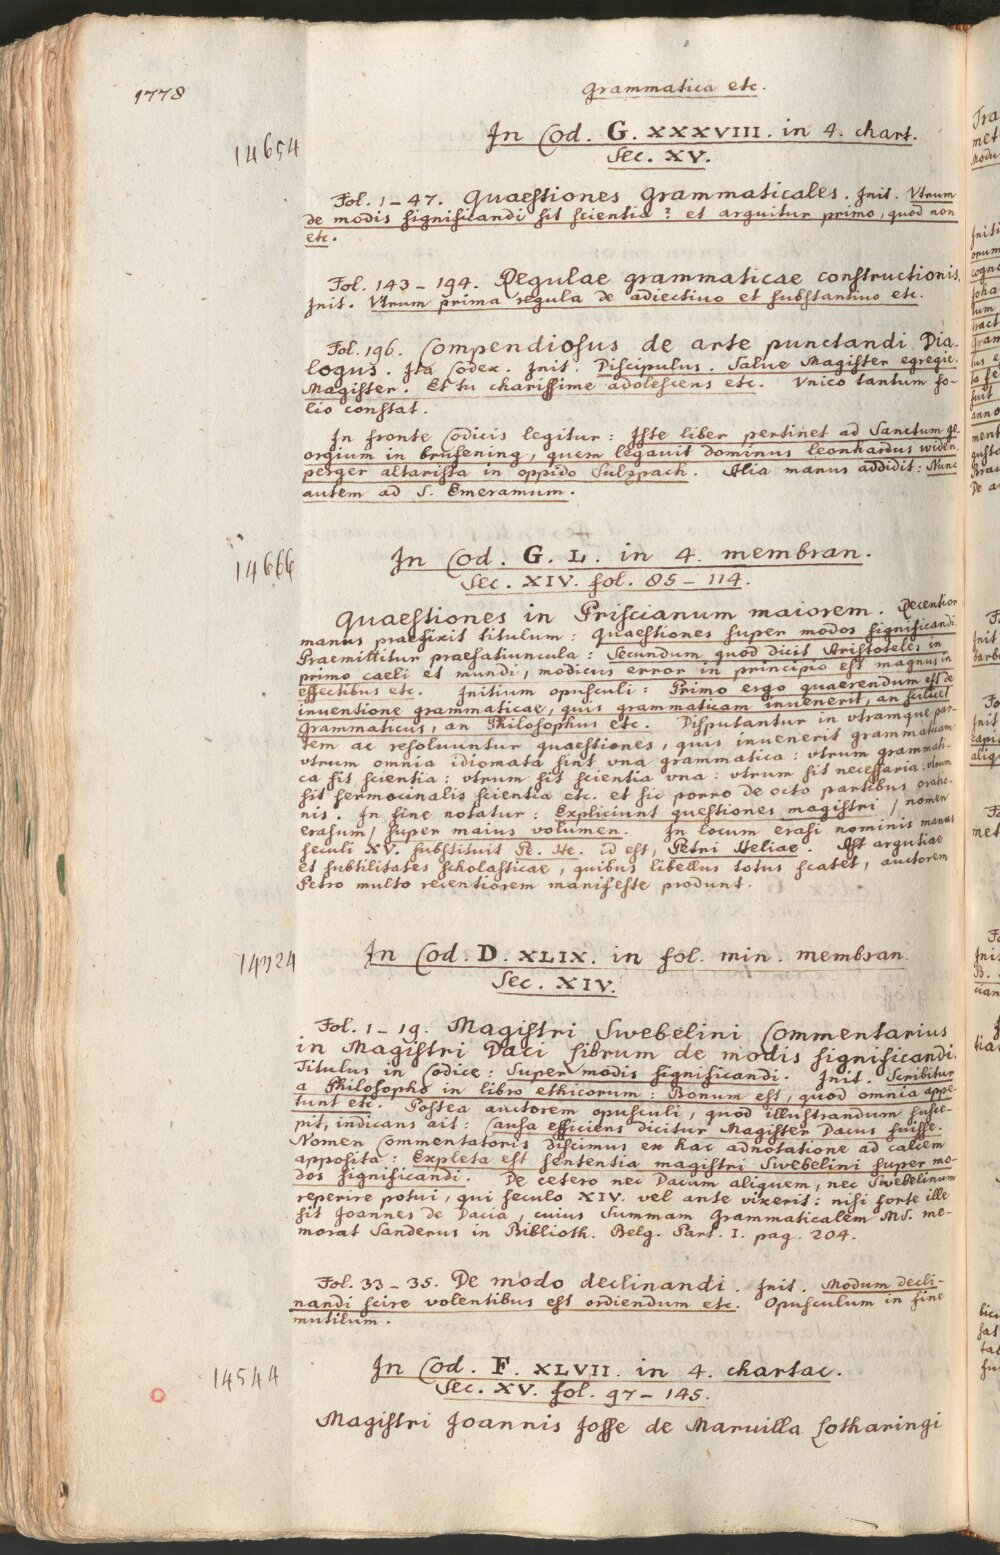 1778
Grammatica etc.
14654
In Cod. G. XXXVIII. in 4. chart.
Sec. XV.
Fol. 1-47. Quaestiones Grammaticales. Init. Vtrum
de modis significandi sit scientia? et arguitur primo, quod non
etc.
Fol. 143-194. Regulae grammaticae constructionis.
Init. Vtrum prima regula de adiectiuo et substantiuo etc.
Fol. 196. Compendiosus de arte punctandi Dia-
logus. Ita Codex. Init. Discipulus. Salue Magister egregie.
Magister. Et tu charissime adolescens etc. Vnico tantum fo-
lio constat.
In fronte Codicis legitur: Iste liber pertinet ad Sanctum ge-
orgium in brufening, quem legauit dominus leonhardus widen-
perger altarista in oppido Sulzpach. Alia manus addidit: Nunc
autem ad S. Emeramum.
14666
In Cod. G. L. in 4. membran.
Sec. XIV. fol. 85-114.
Quaestiones in Priscianum maiorem. Recentior
manus praefixit titulum: Quaestiones super modos significandi.
Praemittitur praefatiuncula: Secundum quod dicit Aristoteles in
primo caeli et mundi, modicus error in principio est magnus in
effectibus etc. Initium opusculi: Primo ergo quaerendum est de
inuentione grammaticae, quis grammaticam inuenerit, an scilicet
Grammaticus, an Philosophus etc. Disputantur in vtramque par-
tem ac resoluuntur quaestiones, quis inuenerit grammaticam:
vtrum omnia idiomata sint vna grammatica: vtrum grammati-
ca sit scientia: vtrum sit scientia vna: vtrum sit necessaria: vtrum
sit sermocinalis scientia etc. et sic porro de octo partibus oratio-
nis. In fine notatur: Expliciunt questiones magistri / nomen
erasum / super maius volumen. In locum erasi nominis manus
seculi XV. substituit Pe. He. id est, Petri Heliae. Ast argutiae
et subtilitates scholasticae, quibus libellus totus scatet, auctorem
Petro multo recentiorem manifeste produnt.
14924
In Cod. D. XLIX. in fol. min. membran.
Sec. XIV.
Fol. 1-19. Magistri Swebelini Commentarius
in Magistri Daci librum de modis significandi.
Titulus in Codice: Super modis significandi. Init. Scribitur
a Philosopho in libro ethicorum: Bonum est, quod omnia appe-
tunt etc. Postea auctorem opusculi, quod illustrandum susce-
pit, indicans ait: Causa efficiens dicitur Magister Dacus fuisse.
Nomen Commentatoris discimus ex hac adnotatione ad calcem
apposita: Expleta est sententia magistri Swebelini super mo-
dos significandi. De cetero nec Dacum aliquem, nec Swebelinum
reperire potui, qui seculo XIV. vel ante vixerit: nisi forte ille
sit Joannes de Dacia, cuius Summam Grammaticalem MS. me-
morat Sanderus in Biblioth. Belg. Part. I. pag. 204.
Fol. 33-35. De modo declinandi. Init. Modum decli-
nandi scire volentibus est ordiendum etc. Opusculum in fine
mutilum.
14544
In Cod. F. XLVII. in 4. chartac.
Sec. XV. fol. 97-145.
Magistri Joannis Josse de Maruilla Lotharingi